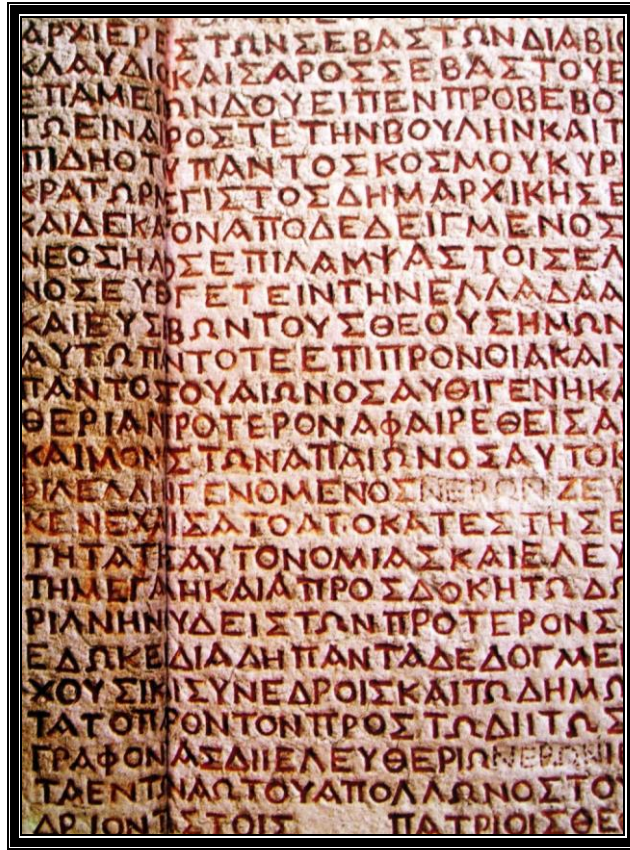 ΑΡΧΙΕΡΕ ΣΤΩΝΣΕΒΑΣΤΩΝΔΙΑΒΙΟ
ΚΛΑΥΔΙΟ ΚΑΙΣΑΡΟΣΣΕΒΑΣΤΟΥΕ
ΕΠΑΜΕΙ ΩΝΔΟΥΕΙΠΕΝΠΡΟΒΕΒΟ
ΤΩΕΙΝΑΙ ΡΟΣΤΕΤΗΝΒΟΥΛΗΝΚΑΙΤ
ΠΙΔΗΟΤ ΥΠΑΝΤΟΣΚΟΣΜΟΥΚΥΡ
ΚΡΑΤΩΡΜ ΕΓΙΣΤΟΣΔΗΜΑΡΧΙΚΗΣΕ
ΚΑΙΔΕΚΑ ΟΝΑΠΟΔΕΔΕΙΓΜΕΝΟΣ
ΝΕΟΣΗΛ ΟΣΕΠΙΛΑΜΨΑΣΤΟΙΣΕΛ
ΝΟΣΕΥΕ ΓΕΤΕΙΝΤΗΝΕΛΛΑΔΑΑ
ΚΑΙΕΥΣ ΒΩΝΤΟΥΣΘΕΟΥΣΗΜΩΝ
ΑΥΤΩΠ ΝΤΟΤΕΕΠΙΠΡΟΝΟΙΑΚΑΙΣ
ΠΑΝΤΟΣ ΟΥΑΙΩΝΟΣΑΥΘΙΓΕΝΗΚΑ
ΘΕΡΙΑΝ ΡΟΤΕΡΟΝΑΦΑΙΡΕΘΕΙΣΑ
ΚΑΙΜΟΝ ΣΤΩΝΑΠΑΙΩΝΟΣΑΥΤΟΚ
ΦΙΛΕΛΛΗ ΓΕΝΟΜΕΝΟΣΝΕΡΩΝΖΕΥ
ΚΕΝΕΧΑ ΙΣΑΤΟΑΠΟΚΑΤΕΣΤΗΣΕ
ΤΗΤΑΤΗΣ ΑΥΤΟΝΟΜΙΑΣΚΑΙΕΛΕΥ
ΤΗΜΕΓΑ ΛΗΚΑΙΑΠΡΟΣΔΟΚΗΤΩΔΩ
ΡΙΑΝΗΝ ΥΔΕΙΣΤΩΝΠΡΟΤΕΡΟΝΣ
ΕΔΩΚΕ ΔΙΑΔΗΠΑΝΤΑΔΕΔΟΓΜΕ
ΧΟΥΣΙΚ ΙΣΥΝΕΔΡΟΙΣΚΑΙΤΩΔΗΜΩ
ΤΑΤΟΠΑ ΡΟΝΤΟΝΠΡΟΣΤΩΔΙΙΤΩΣ
ΓΡΑΦΟΝ ΑΣΔΙΙΕΛΕΥΘΕΡΙΩΝΕΡΩΝΙ
ΤΑΕΝΤ ΝΑΩΤΟΥΑΠΟΛΛΩΝΟΣΤΟ
ΠΑΤΡΙΟΙΣΘΕ